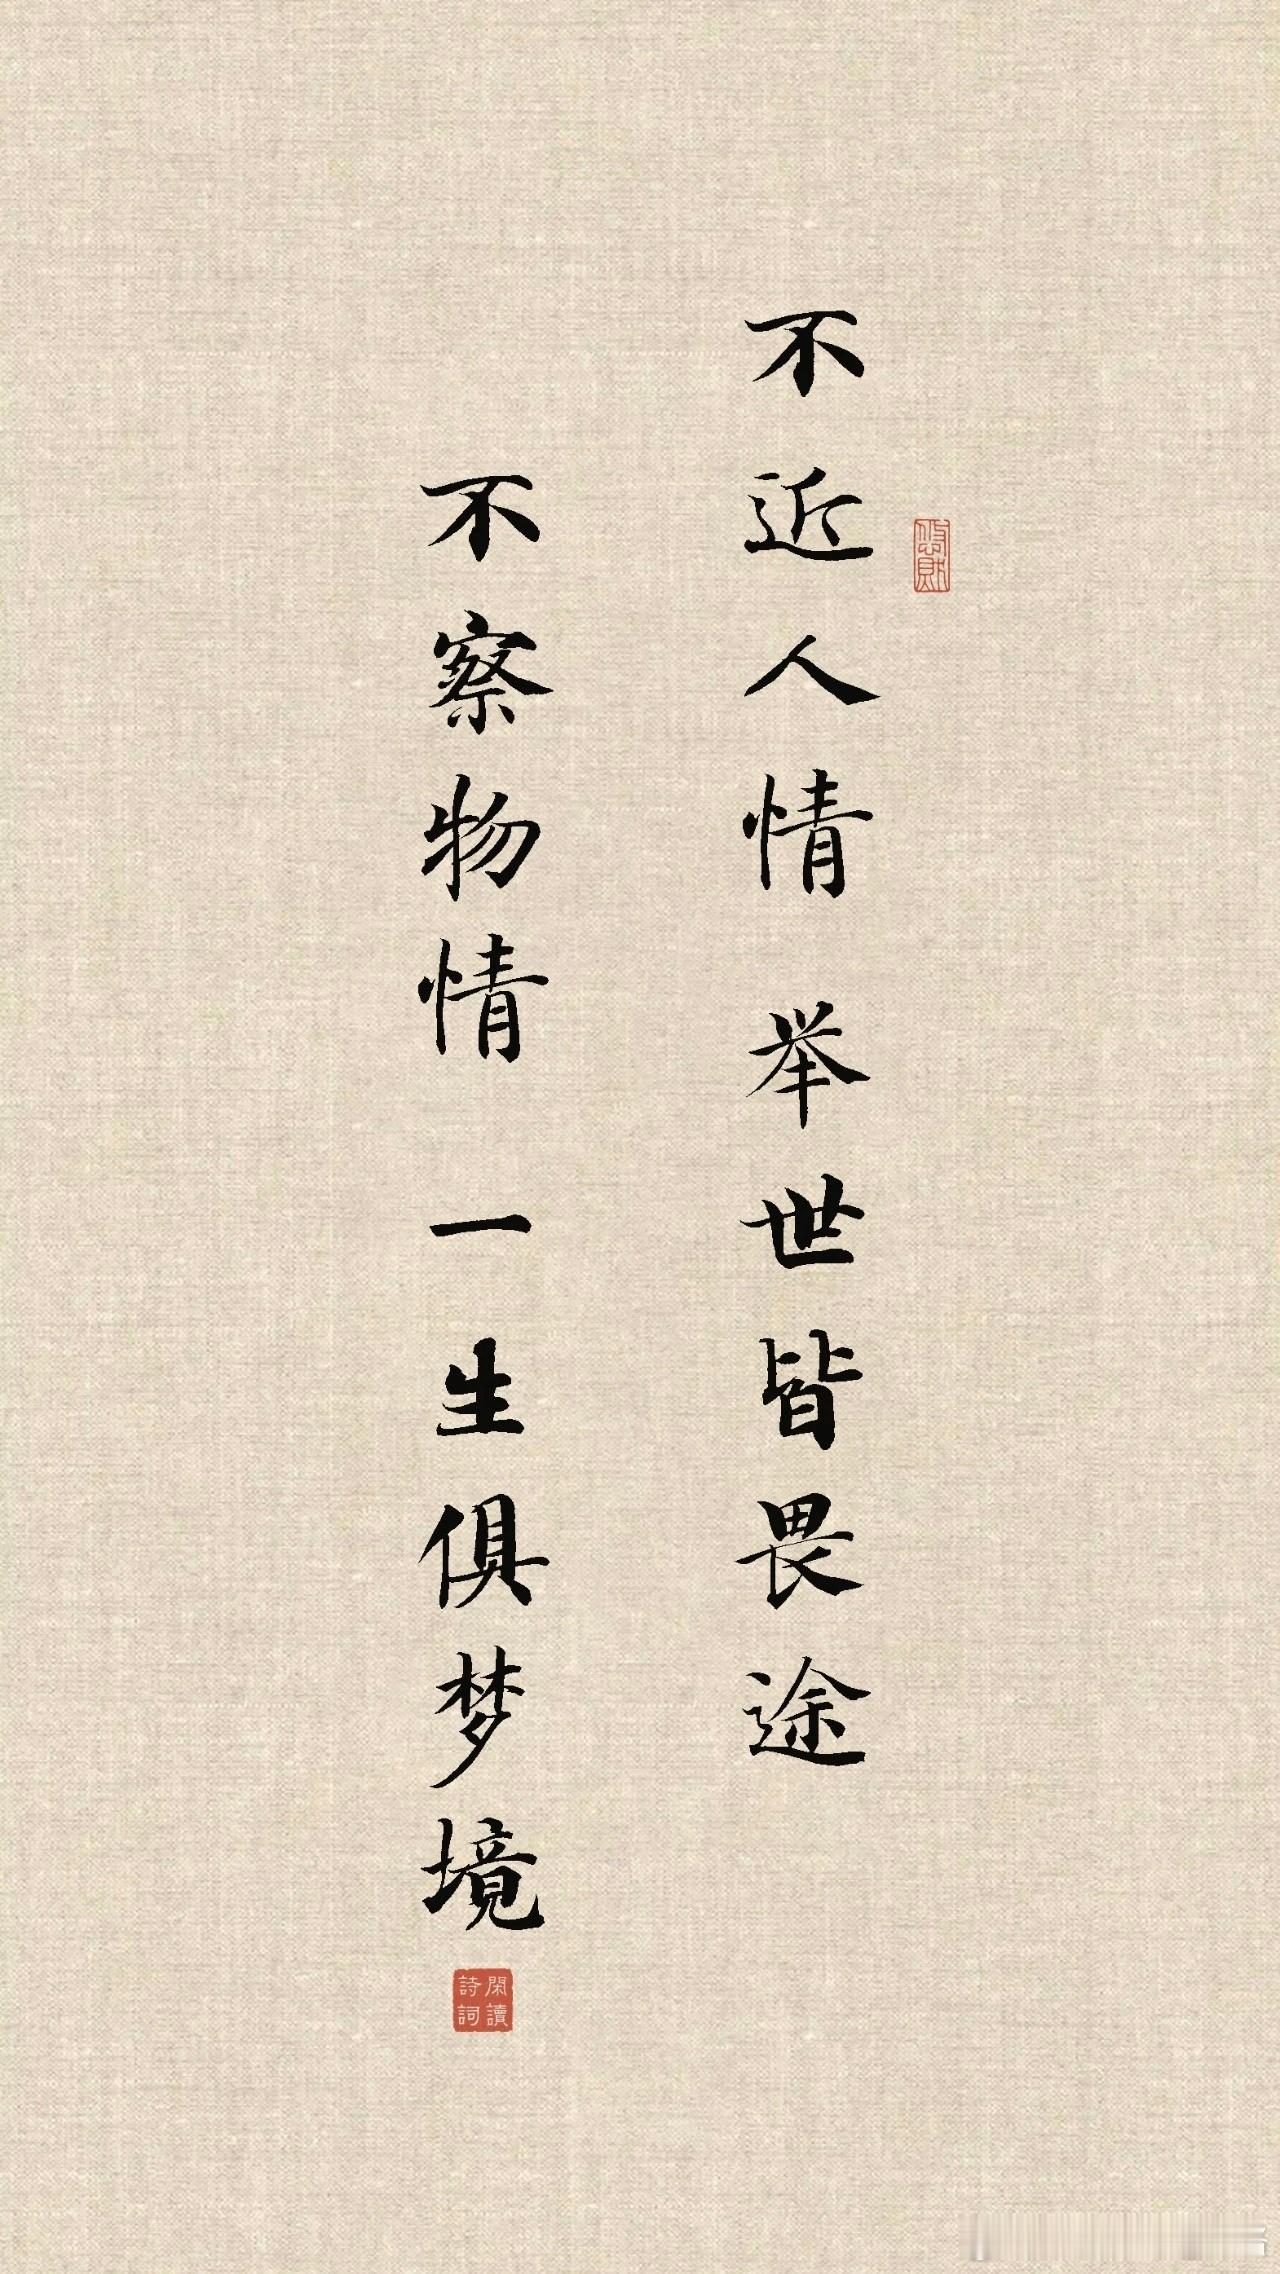 不近人情 举世皆畏途
不察物情 一生俱梦境
閑讀
詩詞